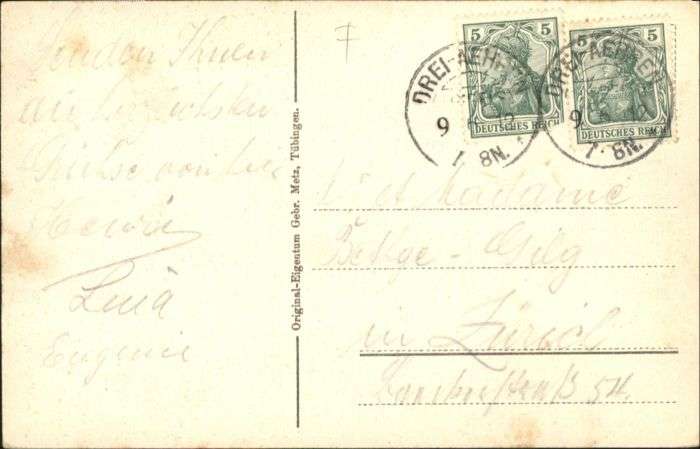 Senden Ihnen
die herzlichsten
Grüsse von hier
Henri
Lina
Eugenie
Original-Eigentum Gebr. Metz, Tübingen.
5 5
DEUTSCHES REICH
5 5
DEUTSCHES REICH
DREI-AEHREN
9 12
7-8N.
DREI-AEHREN
9 12
7-8N.
et Madame
Bettge-Gilg
in Zürich
54.